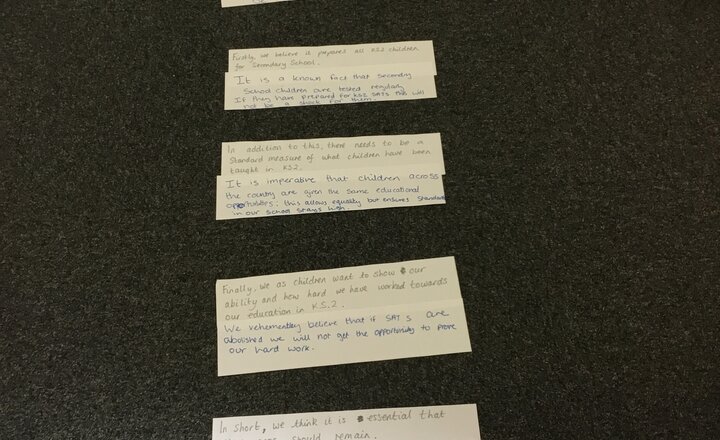 Firstly, we believe it prepares all KS2 children
for Secondary School.
It is a known fact that Secondry
School children are tested regularly
If they have prepared for KS2 SATS this will
not be a shock for them.
In addition to this, there needs to be a
Standard measure of what children have been
taught in KS2.
It is imperative that children across
the country are given the same educational
this allows equality but ensures Standards
in our school stays high.
Finally, we as children want to show our
ability and how hard we have worked towards
our education in KS.2.
We vehemently believe that if SATS are
abolished we will not get the opportunity to prove
our hard work.
In short, we think it is essential that
should remain.